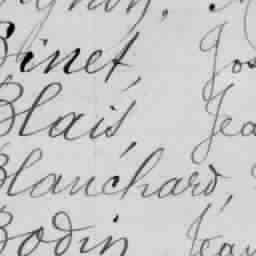 Binet, Jos
Blais, Jea
Blanchard,
Bodin Jean